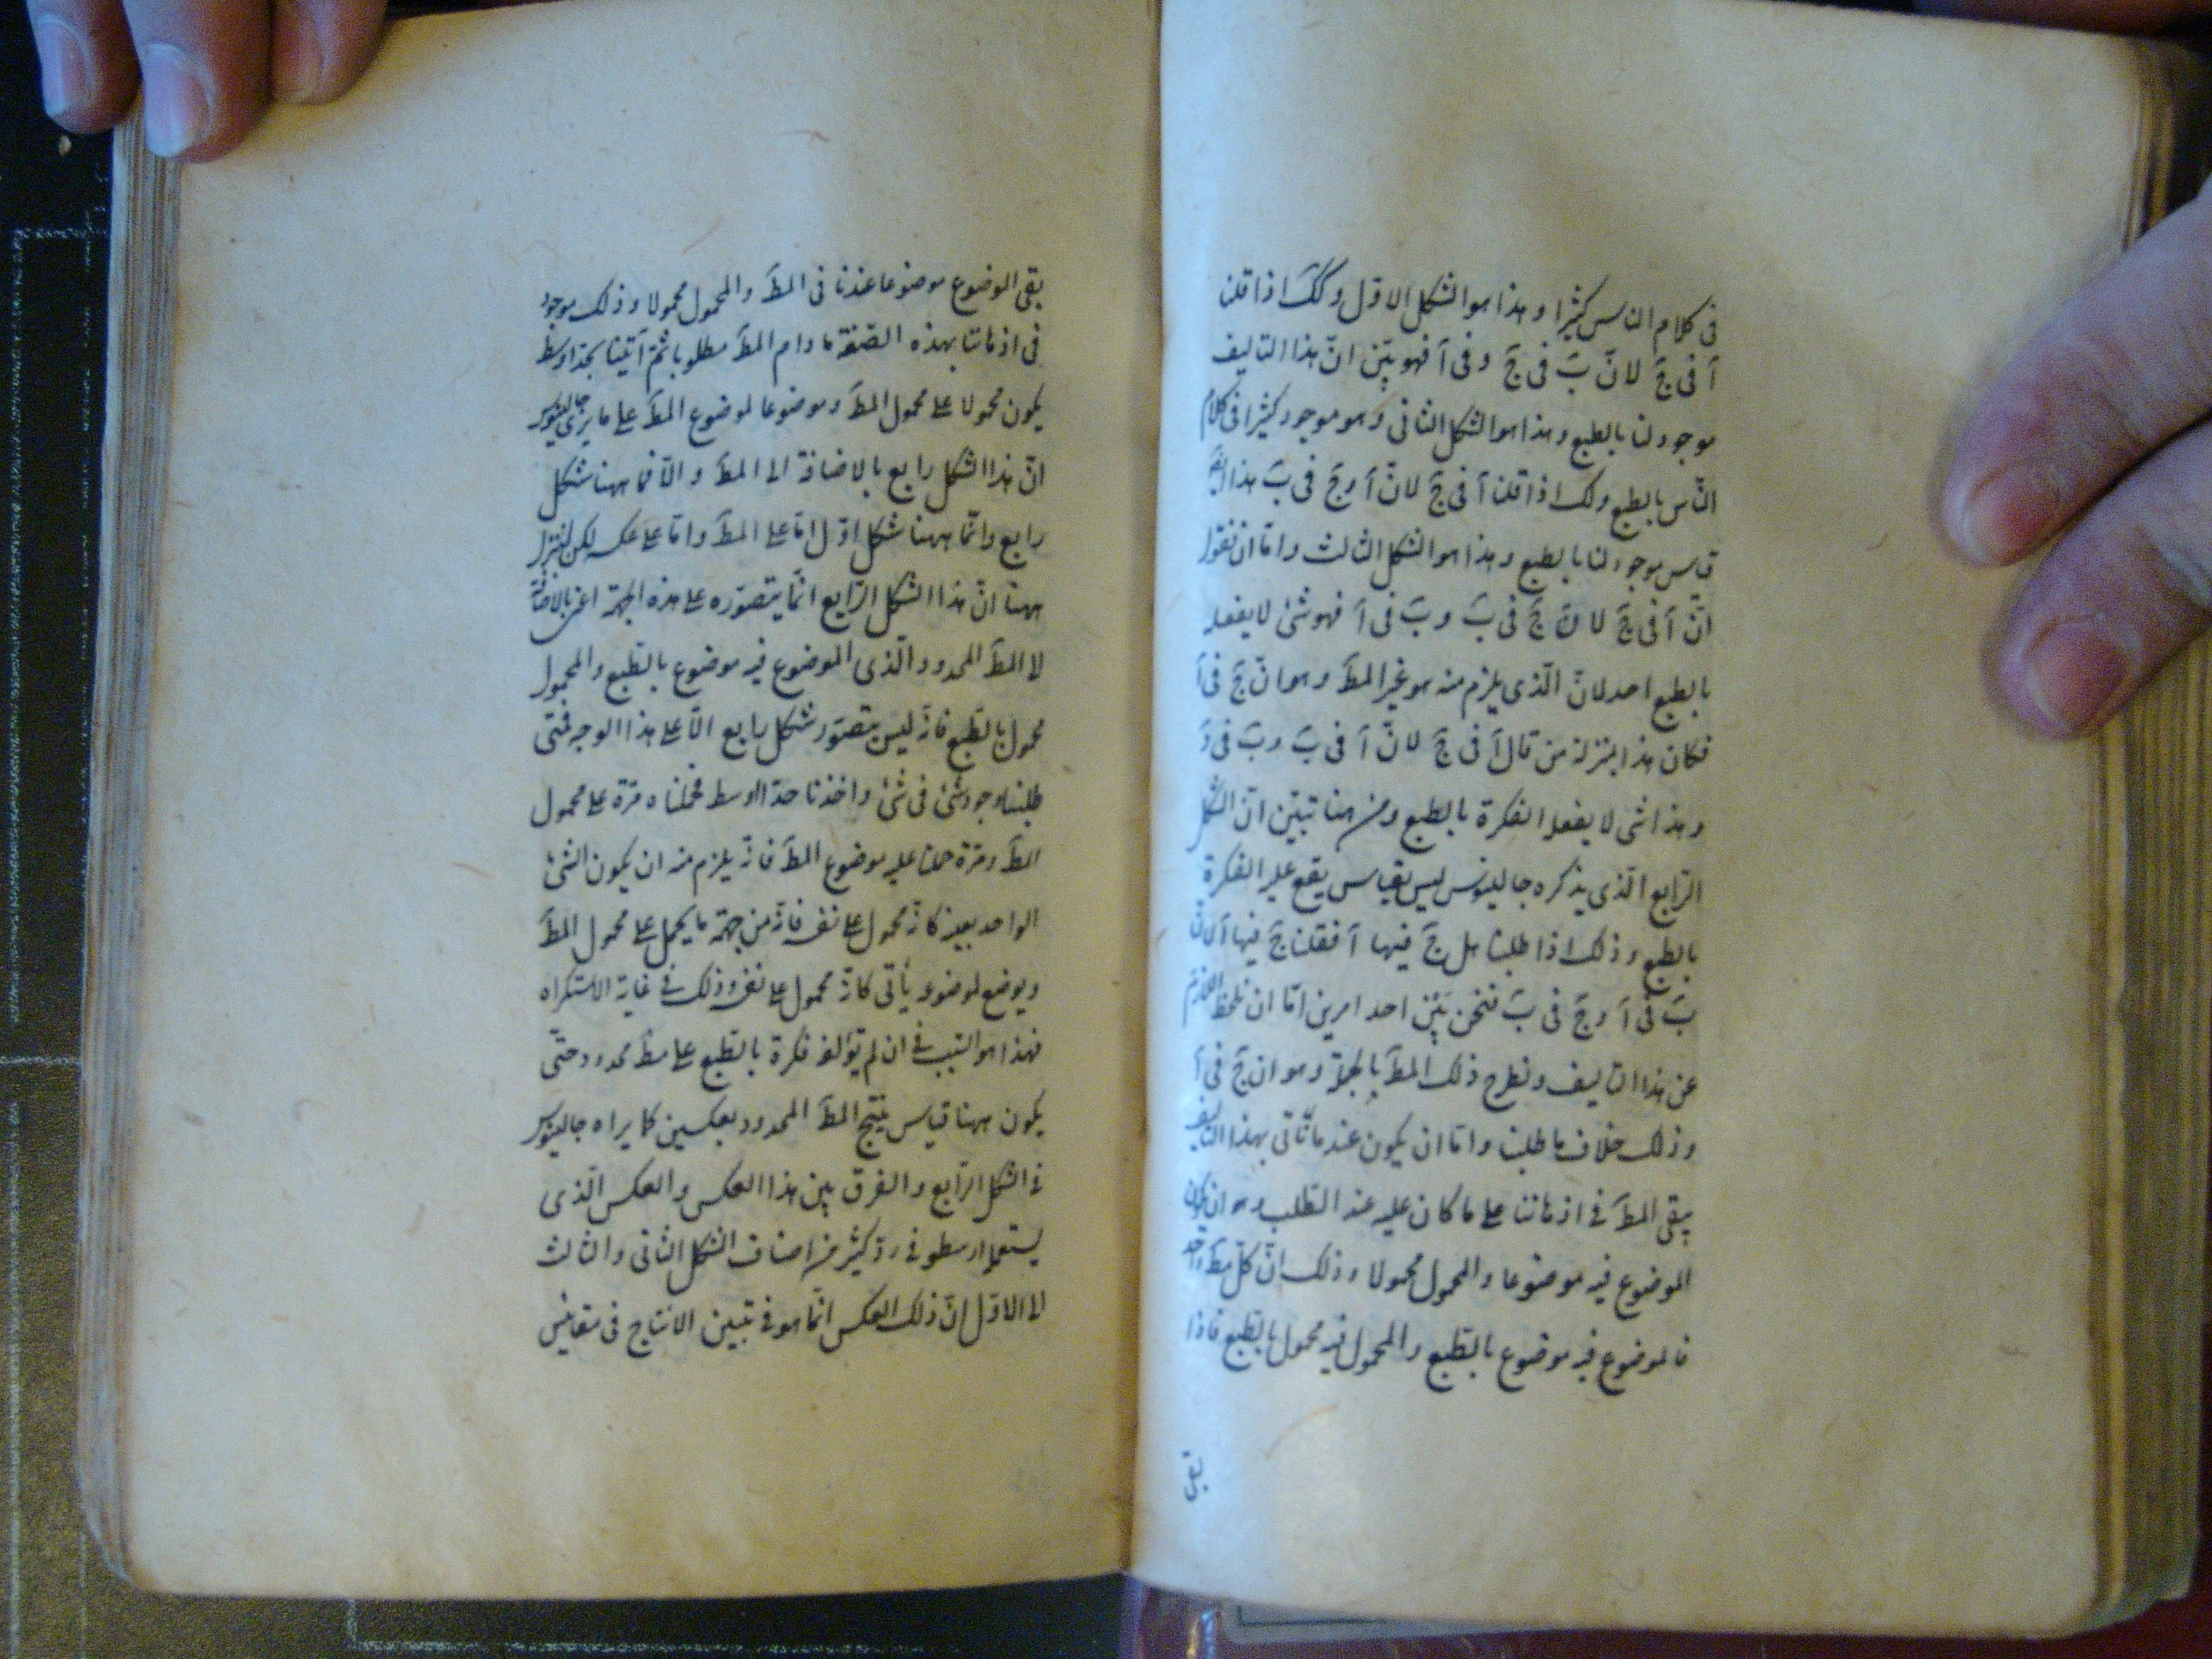 فى كلام الناس كثيرا وهذا هو الشكل الاول وكك اذا قلنا
آ فى جَ لانّ بَ فى جَ وفى آ فهو بيّن انّ هذا التاليف
موجود لنا بالطبع وهذا هو الشكل الثانى وهو موجود كثيرا فى كلام
النّاس بالطبع وكك اذا قلنا آ فى جَ لانّ آ وجَ فى بَ هذا ايضَ
قياس موجود لنا بالطبع وهذا هو الشكل الثالث وامّا ان نقول
انّ آ فى جَ لانّ جَ فى بَ وبَ فى آ فهو شئ لا يفعله
بالطبع احد لانّ الّذى يلزم منه هو غير المطَ وهو انّ جَ فى آ
فكان هذا بمنزلة من قال آ فى جَ لانّ آ فى بَ وبَ فى دَ
وهذا شى لا يفعله الفكرة بالطبع ومن هنا تبيّن انّ الشكل
الرّابع الّذى يذكره جالينوس ليس بقياس يقع عليه الفكرة
بالطبع وذلك اذا طلبنا هل جَ فيها آ فقلنا جَ فيها آ لانّ
بَ فى آ وجَ فى بَ فنحن بيْن احد امرين امّا ان نلحظ اللازم
عن هذا التاليف ونطرح ذلك المطَ بالجملة وهو ان جَ فى آ
وذلك خلاف ما طلبنا وامّا ان يكون عند ما تأتى بهذا التاليف
يبقى المطَ فى اذهاننا على ما كان عليه عند الطّلب وهو ان يكون
الموضوع فيه موضوعا والمحمول محمولا وذلك انّ كلّ مطَ واحد
فالموضوع فيه موضوع بالطّبع والمحمول فيه محمول بالطّبع فاذا
بقى
بقى الموضوع موضوعا عندنا فى المطَ والمحمول محمولا وذلك موجود
فى اذهاننا بهذه الصّفة ما دام المطَ مطلوبا ثمّ آتينا بحدّ اوسط
يكون محمولا على محمول المطَ وموضوعا لموضوع المطَ على ما يرى جالينوس
انّ هذا الشكل رابع بالاضافة الى المطَ والّا فما ههنا شكل
رابع وانّما ههنا شكل اوّل امّا على المطَ وامّا على عكسه لكن لننزل
ههنا انّ هذا الشكل الرّابع انّما يتصوّره على هذه الجهة اعنى بالاضافة
الى المطَ المحدود والّذى الموضوع فيه موضوع بالطّبع والمحمول
محمول بالطّبع فانّه ليس يتصوّر شكل رابع الّا على هذا الوجه فمتى
طلبنا وجود شئ فى شئ واخذنا حدّ الاوسط فحملناه مرّة على محمول
المطَ ومرّة حملنا عليه موضوع المطَ فانّه يلزم منه ان يكون الشئ
الواحد بعينه كانّه محمول على نفسه فانّه من جهة ما يحمل على محمول المطَ
ويوضع لموضوعه يأتى كانّه محمول على نفسه وذلك فى غاية الاستكراه
فهذا هو السّبب فى ان لم تؤلف فكرة بالطّبع على مطَ محدود حتّى
يكون ههنا قياس ينتج المطَ المحدود بعكسين كما يراه جالينوس
فى الشكل الرّابع والفرق بين هذا العكس والعكس الّذى
يستعمله ارسطو فى ردّ كثير من اصناف الشكل الثانى والثالث
الى الاوّل انّ ذلك العكس انّما هو فى تبيين الانتاج فى مقائيس